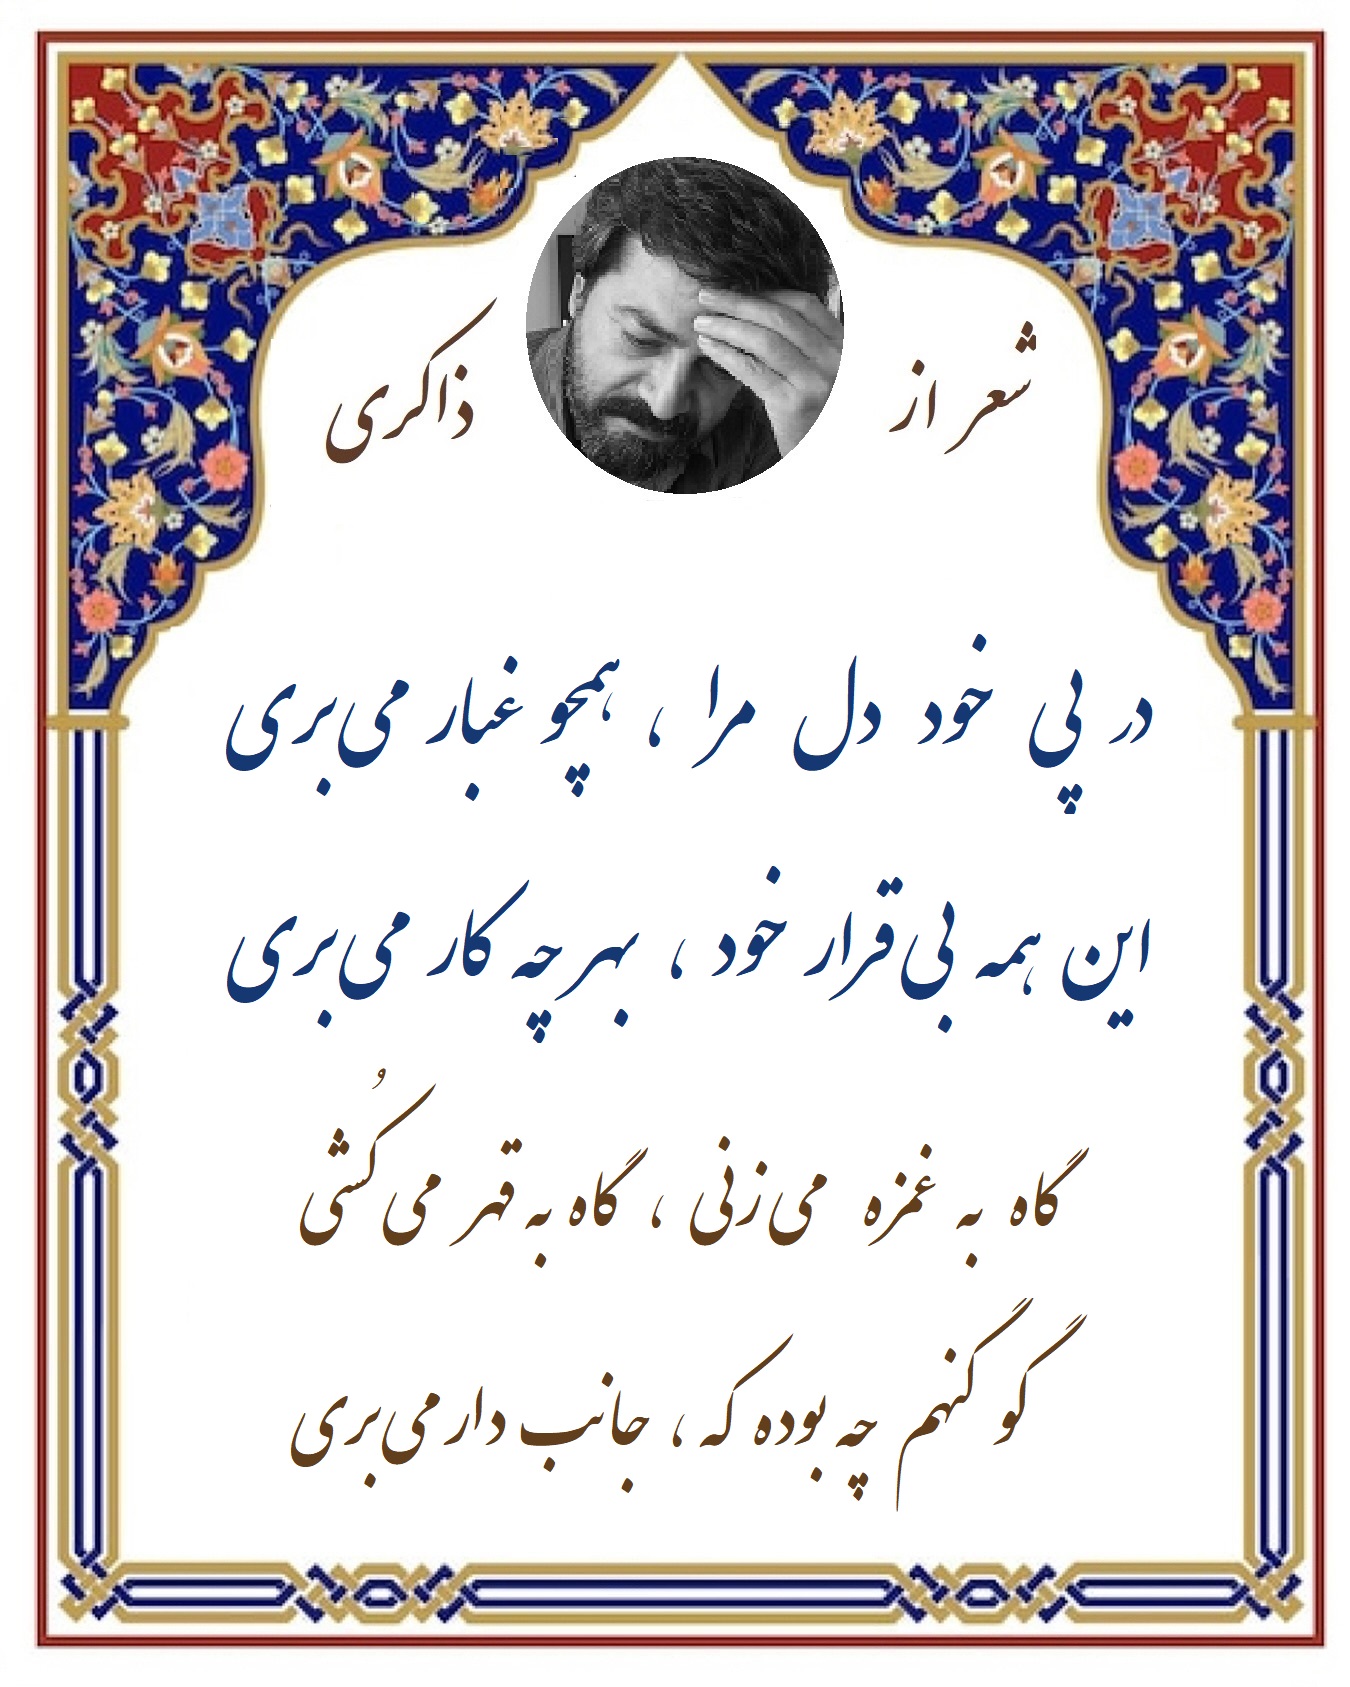 شعر از ذاکری
در پی خود دل مرا ، همچو غبار می‌بری
این همه بی‌قرار خود ، بهر چه کار می‌بری
گاه به غمزه می‌زنی ، گاه به قهر می‌کُشی
گو گنهم چه بوده که ، جانب دار می‌بری